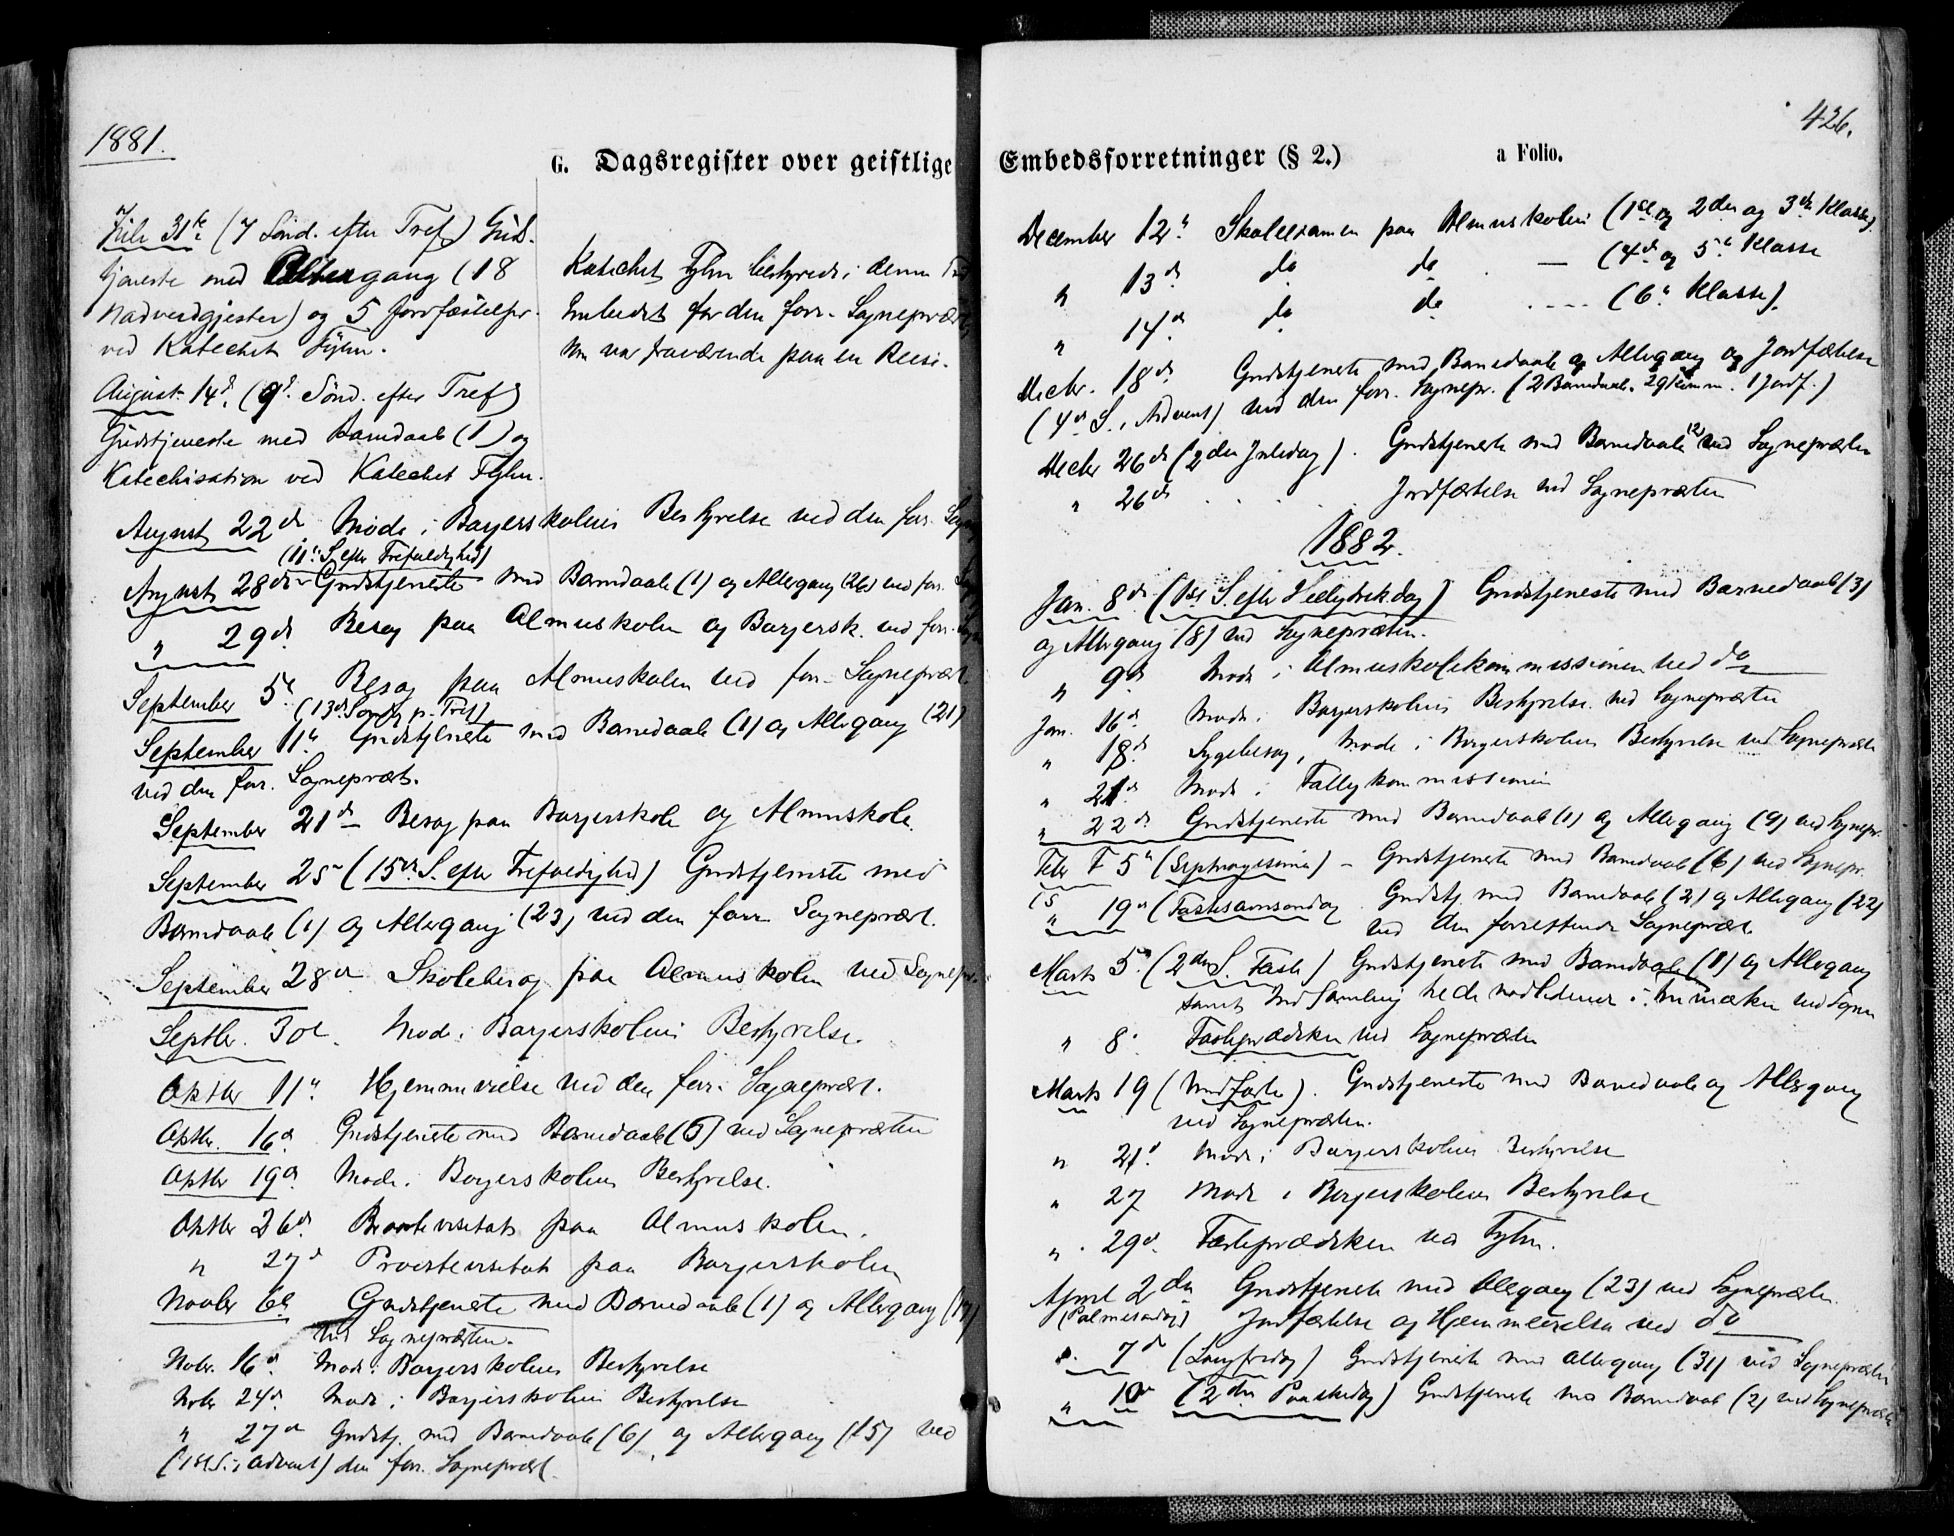 1881.
G. Dagsregister over geistlige
Juli 31te (7 Sönd. efter Tref) Guds-
tjeneste med Altergang (18
Nadverdgjester) og 5 Jordfæstelser
ved Katechet Fylm.
Katechet Fylm bestyrede i denne Tid
Embedet for den forr. Sognepræst
som var fraværende paa en Reise.
August 14d. (9d. Sönd. efter Tref)
Gudstjeneste med Barnedaab (1) og
Katechisation ved Katechet Fylm.
August 22de Møde i Borgerskolens Bestyrelse ved den forr. Sogn
(11te S. efter Trefoldighed)
August 28de Gudstjeneste med Barnedaab (1) og Altergang (26) ved forr. Sogn
" 29de Besøg paa Almuskolen og Borgersk. ved forr. Sogn
September 5te Besøg paa Almuskolen ved forr. Sognepræst
(13de Søndg p. Tref)
September 11te Gudstjeneste med Barnedaab (1) og Altergang (21)
ved den forr. Sognepræst.
September 21de – Besøg paa Borgerskole og Almuskole.
September 25 (15de S. efter Trefoldighed) Gudstjeneste med
Barnedaab (1) og Altergang (23) ved den forr. Sognepræst.
September 28de Skolebesøg paa Almuskolen ved Sognepr.
Septbr. 30te Møde i Borgerskolens Bestyrelse.
Oktbr 11te Hjemmevielse ved den forr. Sognepræst.
Oktbr. 16d. Gudstjeneste med Barnedaab (5) ved Sognepræsten
Oktbr 19d. Møde i Borgerskolens Bestyrelse.
Oktbr 26de Provstevisitats paa Almuskolen.
" 27d Provstevisitats paa Borgerskolen
Novbr 6te Gudstjeneste med Barnedaab (1) og Altergang (17)
ved Sognepræsten.
Nobr. 16d Møde i Borgerskolens Bestyrelse
Nobr 24de Møde i Borgerskolens Bestyrelse
" 27de Gudstj. med Barnedaab (6) og Altergang (15) ved
(1st S. i Advent) den forr. Sognepræst.
426.
Embedsforretninger (§ 2.) a Folio.
December 12te Skoleexamen paa Almuskolen (1ste og 2den og 3die Klasse)
" 13de do do — (4de og 5te Klasse
" 14de do do ---- (6te Klasse).
Decbr. 18de Gudstjeneste med Barnedaab og Altergang og Jordfæstelse
(4de S. i Advent) ved den forr. Sognepr. (2 Barnedaab. 29 Komm. 1 Jordf.)
Decbr 26de (2den Juledag). Gudstjeneste med Barnedaab (2) ved Sognepræsten
" 26de . . . Jordfæstelse ved Sognepræsten
1882.
Jan. 8de (1ste S. efter Hellig trek dag) Gudstjeneste med Barnedaab (3)
og Altergang (8) ved Sognepræsten.
" 9de Møde i Almuskolekommissionen ved do
Jan. 16de Møde i Borgerskolens Bestyrelse ved Sognepræsten
" 18de Sygebesøg, Møde i Borgerskolens Bestyrelse ved Sognepræsten
" 21de Møde i Fattigkommissionen
" 22de Gudstjeneste med Barnedaab (1) og Altergang (9) ved Sognepr.
Febr 5te (Septuagesima) – Gudstjeneste med Barnedaab (6) ved Sognepr.
" 19de (Fastelavnssøndag Gudstj. med Barnedaab (2) og Altergang (22)
ved den forrettende Sognepræst.
Marts 5te (2den S. i Faste) Gudstjeneste med Barnedaab (1) og Altergang
samt Indsamling ved Sogn
" 8. Fasteprædiken ved Sognepræsten
Marts 19 (Midfaste). Gudstjeneste med Barnedaab og Altergang
ved Sognepræsten.
" 21d. Møde i Borgerskolens Bestyrelse
" 27 Møde i Borgerskolens Bestyrelse
" 29d. Fasteprædiken ved Fylm.
April 2den Gudstjeneste med Altergang (23) ved Sognepræsten
(Palmesøndag) Jordfæstelse og Hjemmevielse ved do
" 7de (Langfredag) Gudstjeneste med Altergang (31) ved Sognepræsten
" 10de (2den Paaskedag) Gudstjeneste med Barnedaab (2) ved Sognepræsten